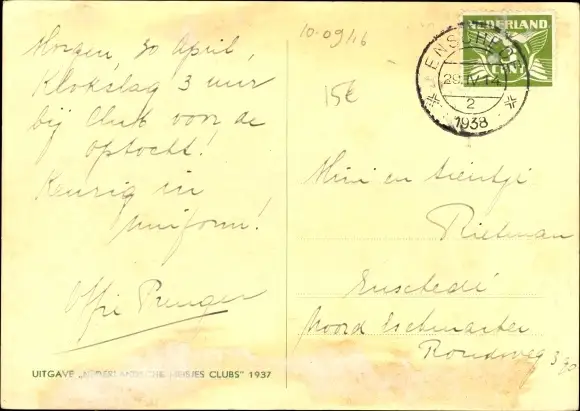 Morgen, 30 April,
Klokslag 3 uur
bij Club voor de
optocht!
Keurig in
uniform!
UITGAVE „NEDERLANDSCHE MEISJES CLUBS" 1937
10-09/16
15€
NEDERLAND
CENT
ENSCHEDE
29.IV.14
2
1938
Mini en Sientje
Rietman
Enschede
Noord Eschmarker
Rondweg 390